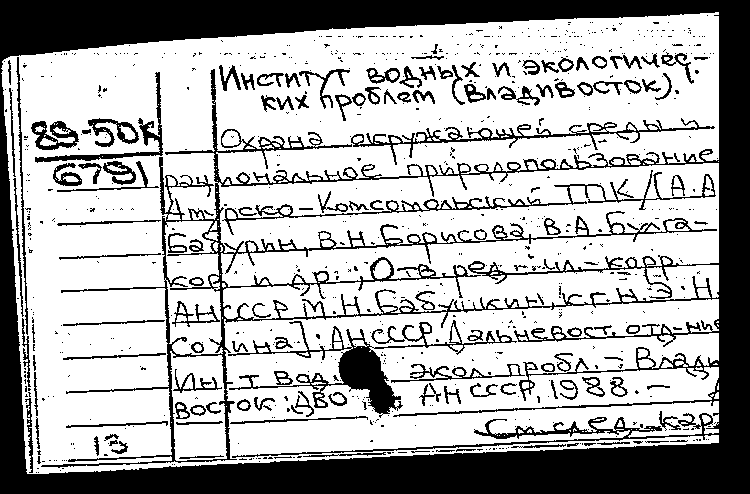 Институт водных и экологичес-
ких проблем (Владивосток).
89-50к
6791
Охрана окружающей среды и
рациональное природопользование
Амурско-Комсомольский ТПК/[А.А
Бабурин, В.Н. Борисова, В.А. Булга-
ков и др.; Отв. ред. чл.-корр
АНСССР М.Н. Бабушкин, к.г.н. Э.Н.
Сохина]; АНСССР. Дальневост. отд-ние
Ин-т вод. экол. пробл. - Влади
восток: ДВО АН СССР, 1988. -
См. след. кар
13